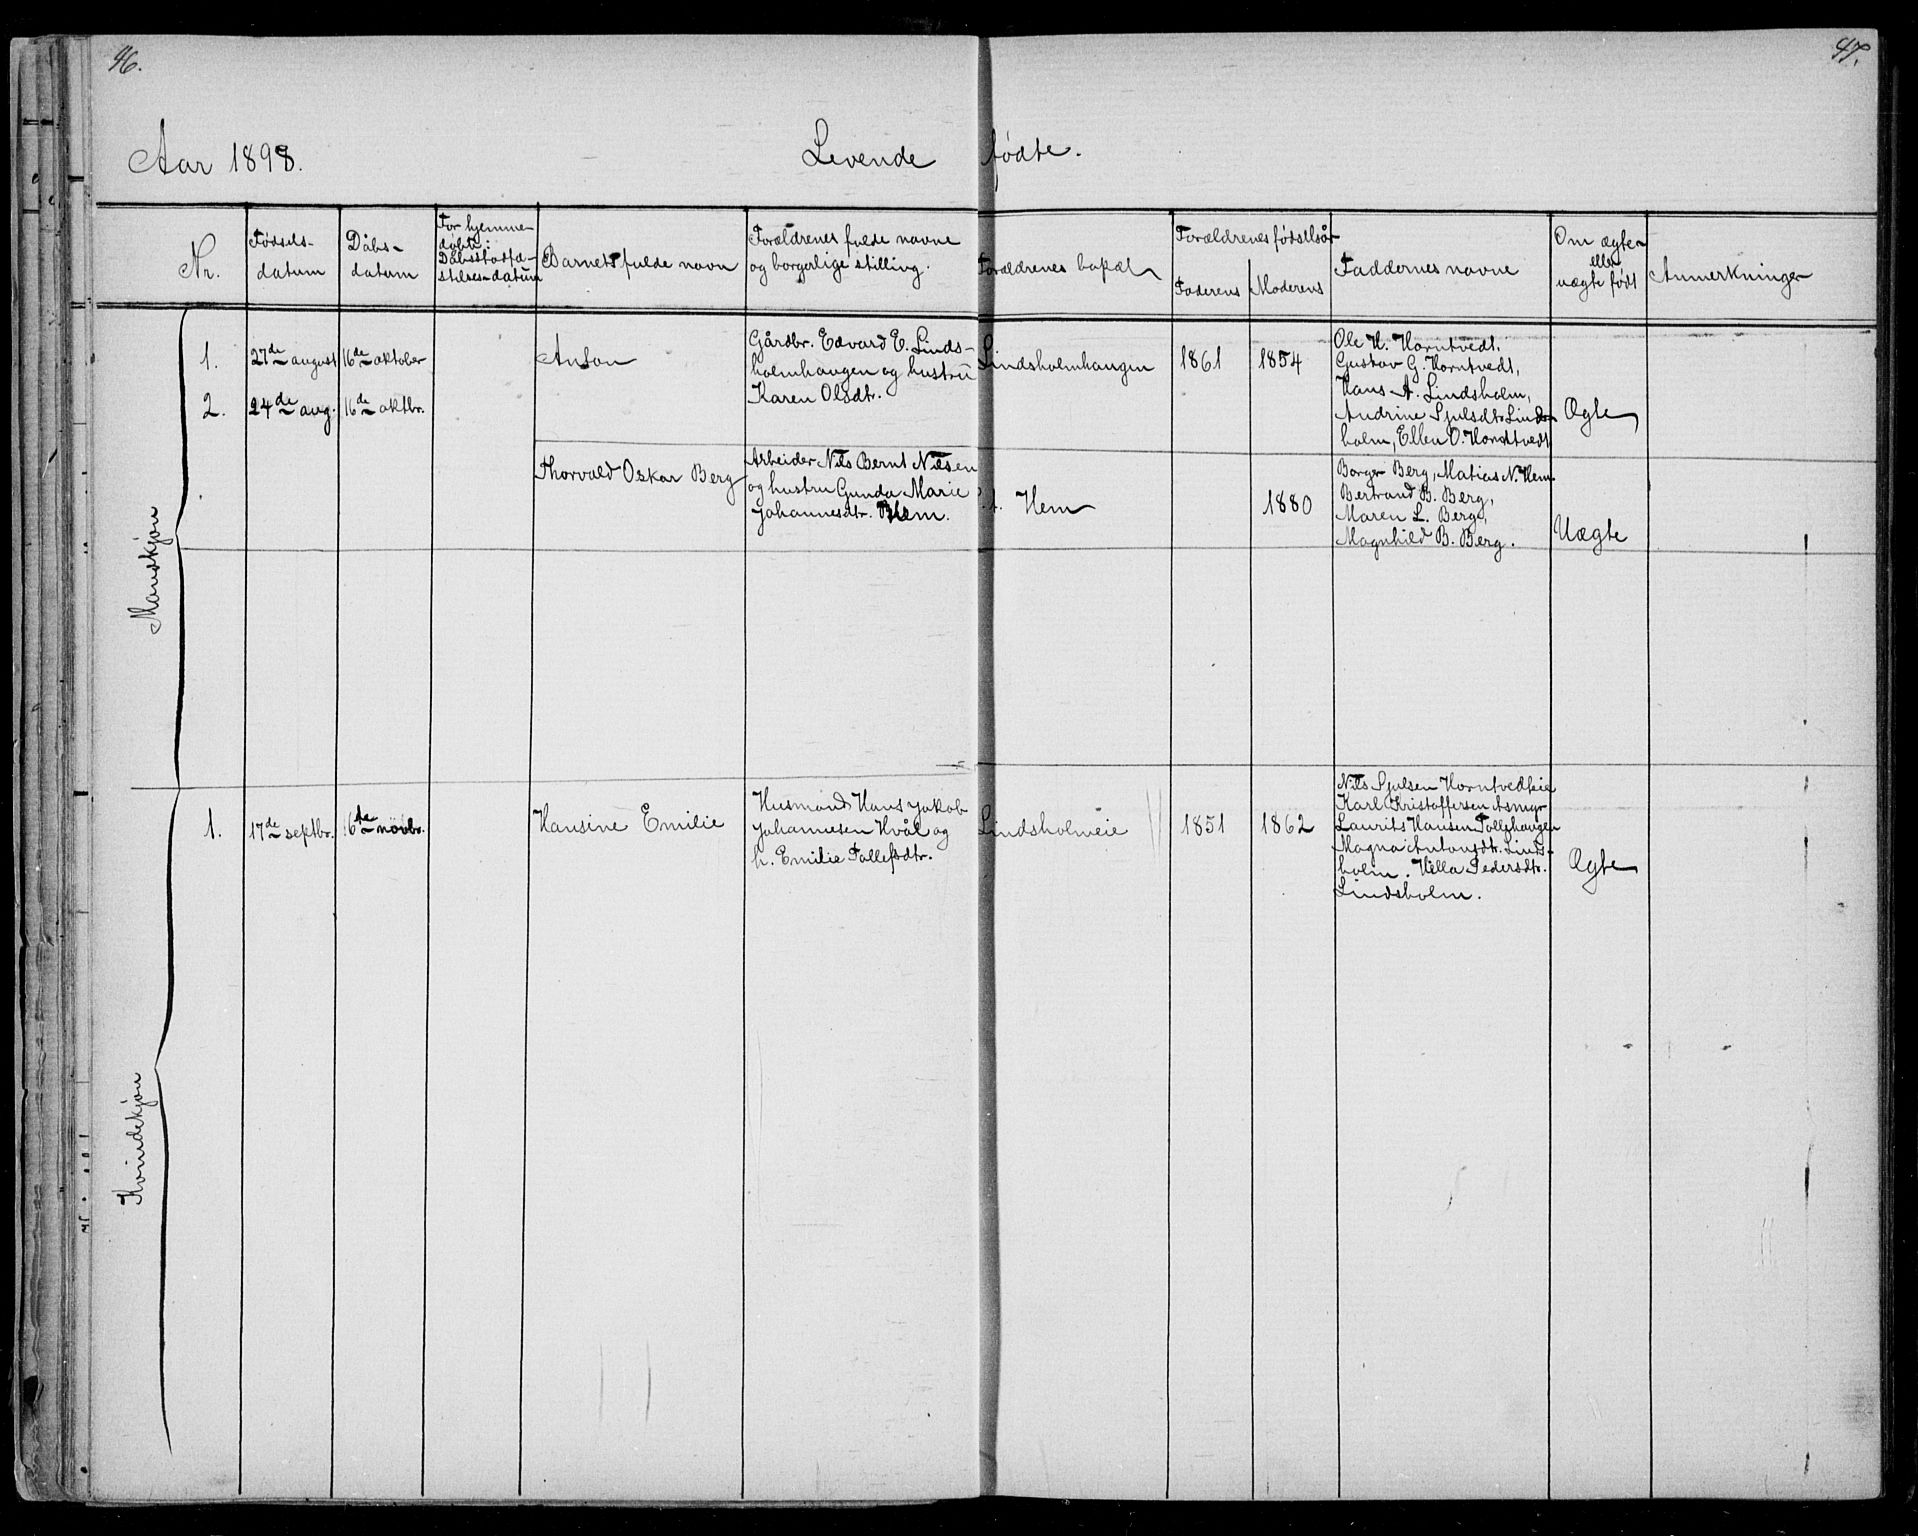 46.
47.
Aar 1898.
Levende fødte.
Nr.
Fødsels-
datum
Dåbs-
datum
For hjemme-
døbte:
Dåbsstadfæ-
stelses-datum
Barnets fulde navn
Forældrenes fulde navne
og borgerlige stilling.
Forældrenes bopæl
Forældrenes fødselsår
Faderens
Moderens
Faddernes navne
Om ægte-
eller
uægte født
Anmerkninger
Mandskjøn
1.
27de august
16de oktober
Anton
Gårdbr. Edvard E. Linds-
holmhaugen og hustru
Karen Olsdtr.
Lindsholmhaugen
1861
1854
Ole H. Horntvedt,
Gustav G. Horntvedt,
Hans A. Lindsholm,
Andrine Sjulsdtr. Linds-
holm, Ellen O. Horntvedt
Ægte
2.
24de aug.
16de oktbr.
Thorvald Oskar Berg
Arbeider Nils Bernt Nilsen
og hustru Gunda Marie
Johannesdtr. Hem.
Hem
1880
Borger Berg, Matias N. Hem
Bertrand B. Berg,
Maren L. Berg,
Magnhild B. Berg.
Uægte
Kvindekjøn
1.
17de septbr.
16de novbr.
Hansine Emilie
Husmand Hans Jakob
Johannesen Hvål og
h. Emilie Tollefsdtr.
Lindsholmeie
1851
1862
Nils Sjulsen Horntvedteie
Karl Kristoffersen Asmyr
Laurits Hansen
Magna Antonsdtr. Linds-
holm. Hella Pedersdtr.
Lindsholm.
Ægte